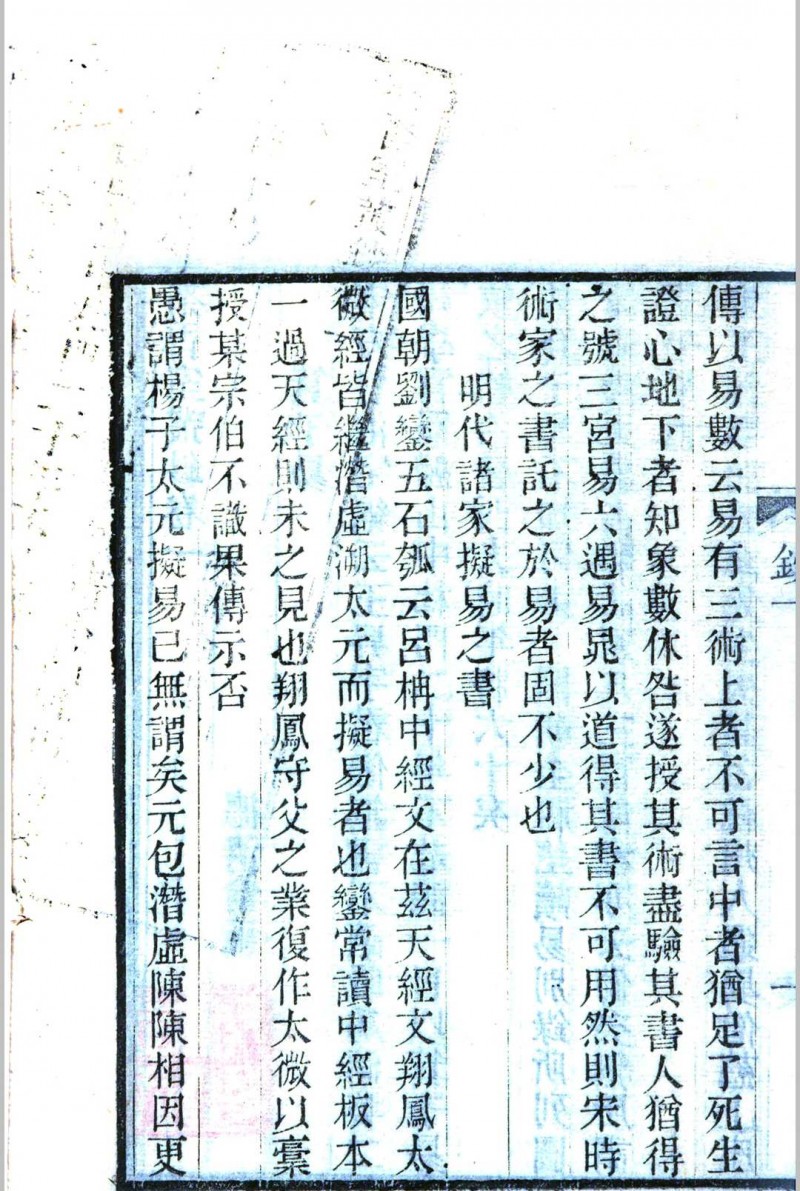 傳以易數云易有三術上者不可言中者猶足了死生
證心地下者知象數休咎遂授其術盡驗其書人猶得
之號三宮易六遇易晁以道得其書不可用然則宋時
術家之書託之於易者固不少也
明代諸家擬易之書
國朝劉鑾五石瓠云呂柟中經文在茲天經文翔鳳太
微經皆繼潛虛溯太元而擬易者也鑾常讀中經板本
一過天經則未之見也翔鳳守父之業復作太微以藁
授某宗伯不識果傳示否
愚謂楊子太元擬易已無謂矣元包潛虛陳陳相因更